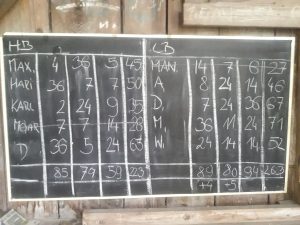 HB CB
MAX. 4 36 5 45 MAN. 14 7 6 27
HARI 36 7 7 50 A 8 24 14 46
KARL 2 24 9 35 D. 7 24 36 67
7 7 14 28 M. 36 11 24 71
D 36 5 24 65 Wi 24 14 14 52
85 79 59 223 89 80 94 263
+4 +5